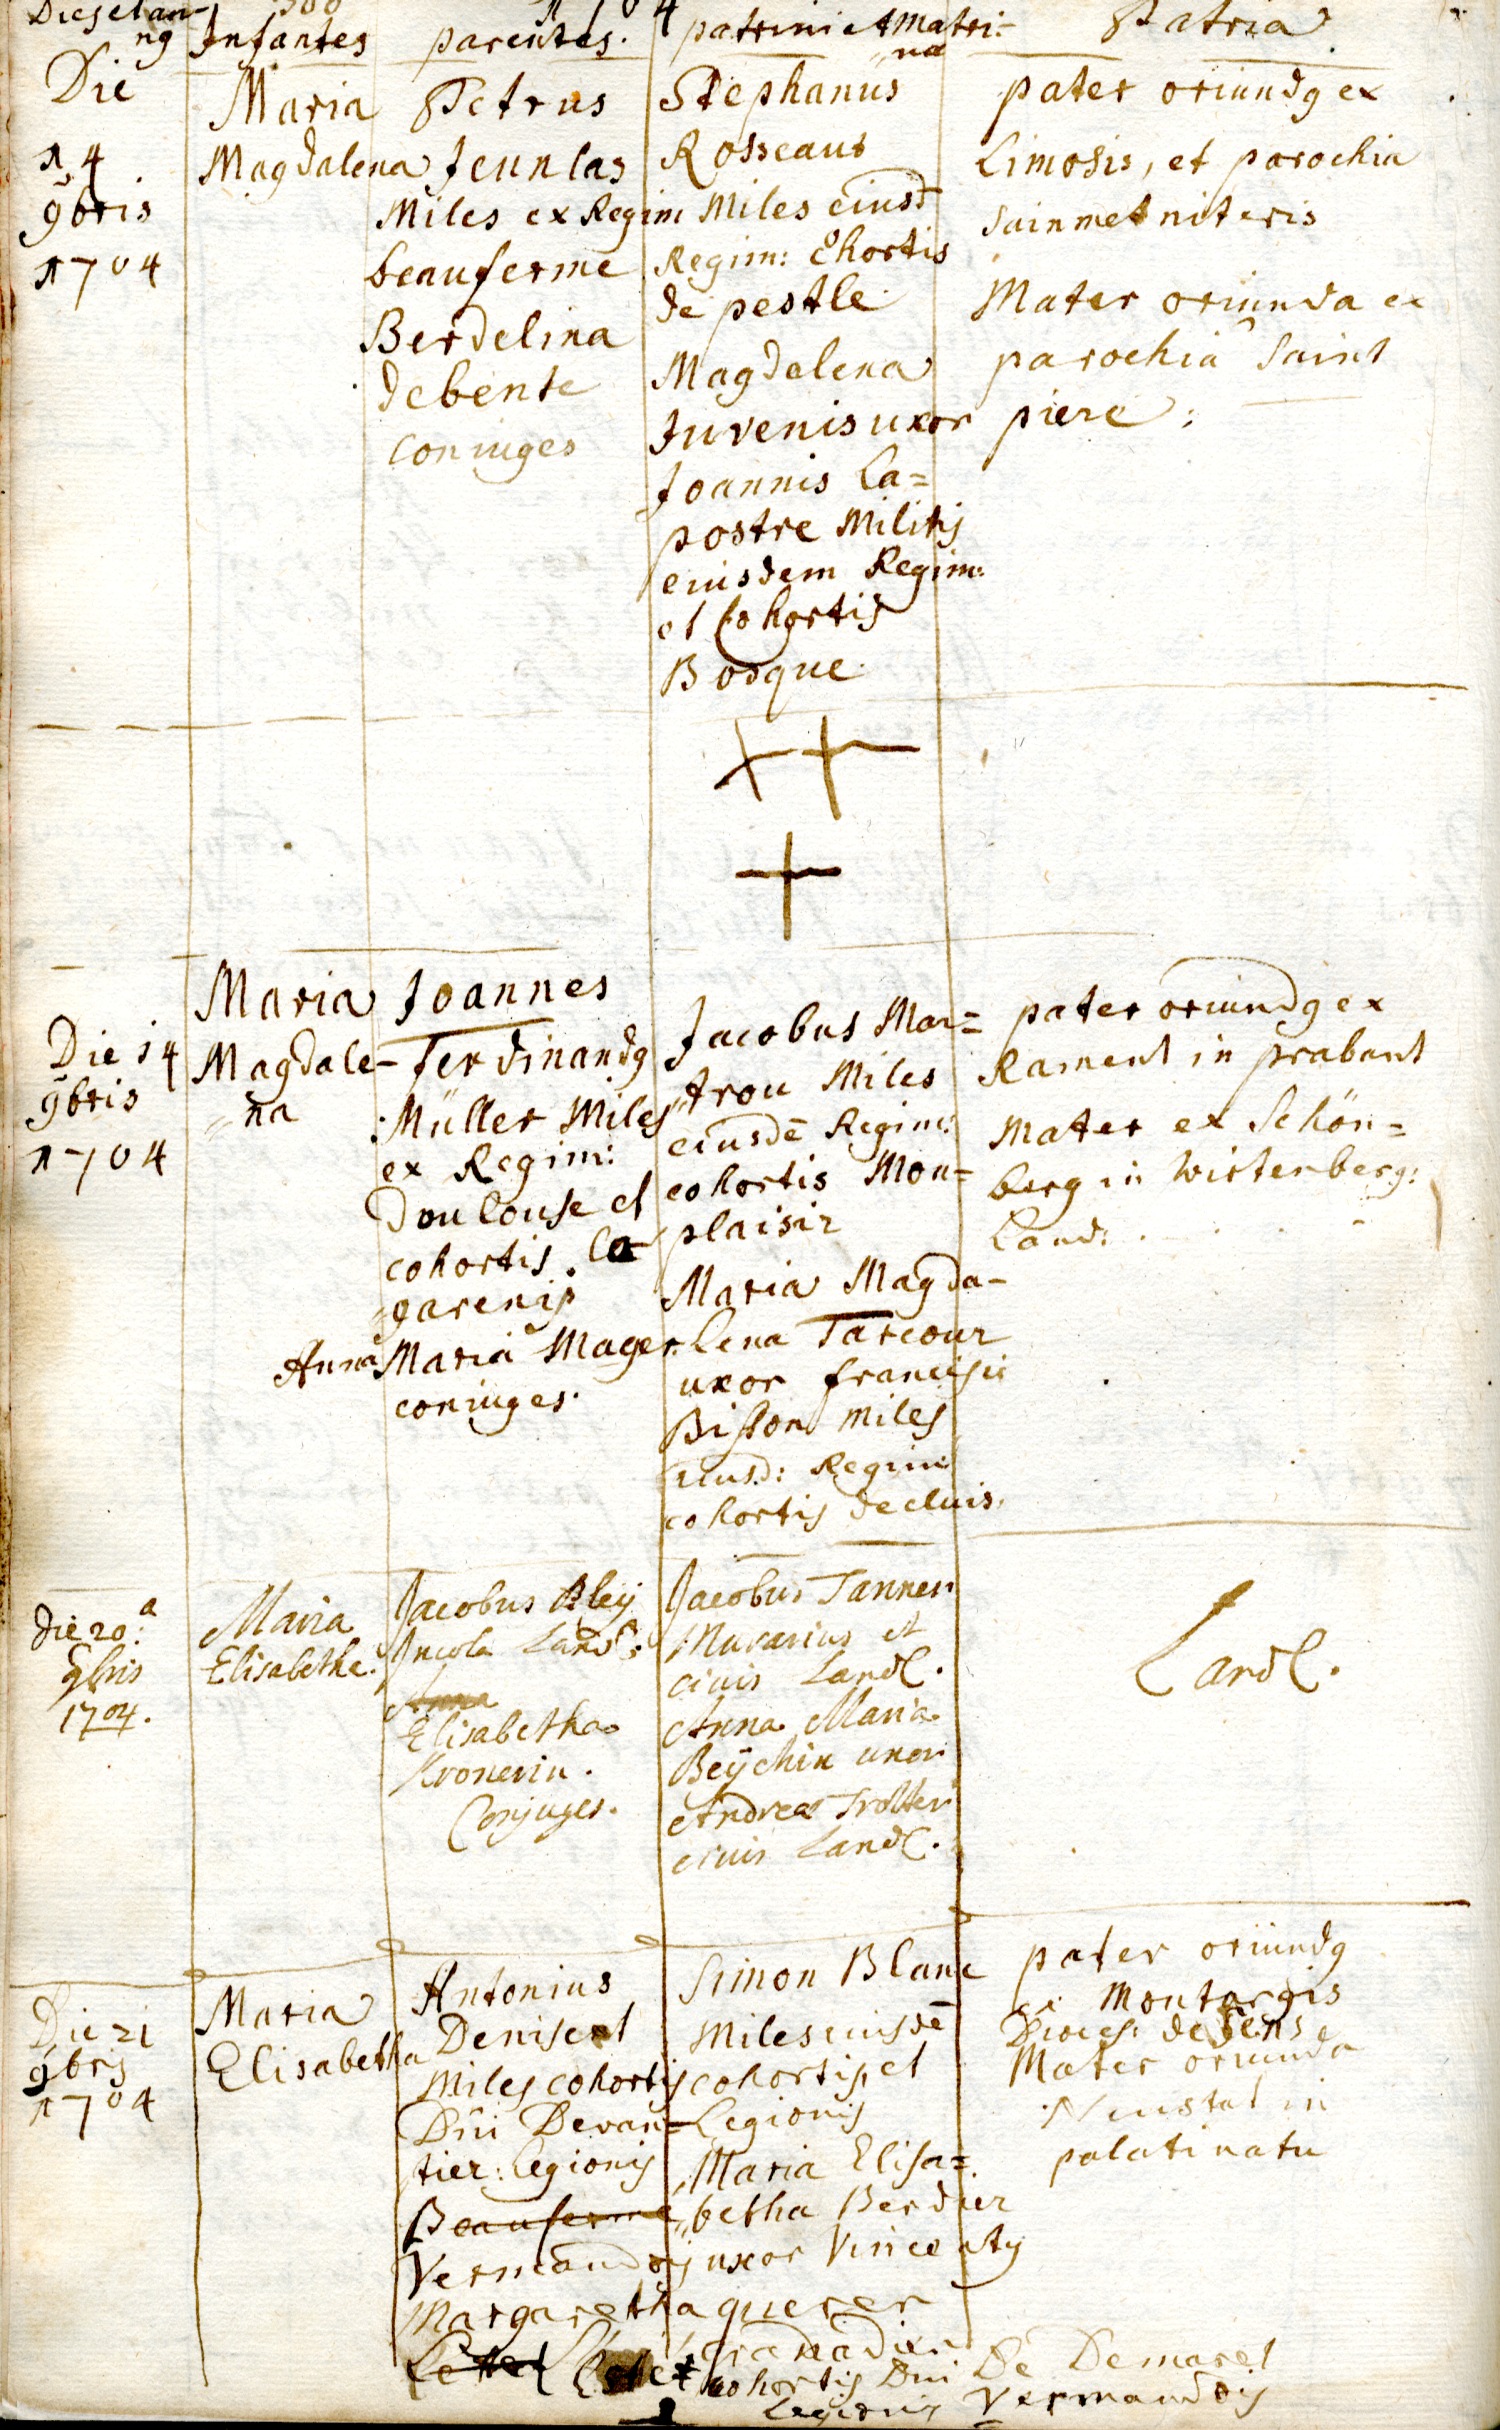 Dies et an=
ng
Infantes
parentes.
patrini et Matri=
na
Patria
Die
14
9bris
1704
Maria
Magdalena
Petrus
Jeunlas
Miles ex Regim
beauferme
Berdelina
debente
coniuges
Stephanus
Rosseaut
Miles eiusd
Regim: Chortis
de pestle
Magdalena
Juvenis uxor
Joannis La=
postre Militis
eiusdem Regim:
et Cohortis
Bosque
pater oriundg ex
Limosis, et parochia
sainmet niteris
Mater oriunda ex
parochia Saint
piere:
Die 14
9bris
1704
Maria
Magdale-
na
Joannes
Ferdinandg
Müller Miles
ex Regim:
Doulouse et
cohortis. La
garenis
Anna Maria Mager
coniuges.
Jacobus Mar=
trou Miles
eiusdē Regim:
cohortis Mon=
plaisir
Maria Magda-
lena Tarcour
uxor francisci
Bisson miles
eiusd: Regim
cohortis decluis.
pater oriundg ex
Rament in prabant
Mater ex Schön=
berg in Wirtenberg:
Land:
die 20.a
9bris
1704.
Maria
Elisabetha.
Jacobus Bley
Incola Land:
Anna
Elisabetha
Kronerin.
Conjuges.
Jacobus Tanner
Murarius et
civis Land.
Anna Maria
Beÿchin uxor
Andreæ Trotter
civis Land.
Land.
Die 21
9bris
1704
Maria
Elisabetha
Antonius
Deniset
Miles cohortis
Dñi Devan=
tier: legionis
Beauferme
Vermandois
Margaretha
Simon Blanc
Miles eiusdē
cohortis, et
Legionis
Maria Elisa=
betha Berdier
uxor Vincenty
querer
granadier
cohortis Dni De Demaret
Legionis Vermandois
pater oriundg
ex Montargis
Dioces: de Sens
Mater oriunda
Neustat in
palatinatu